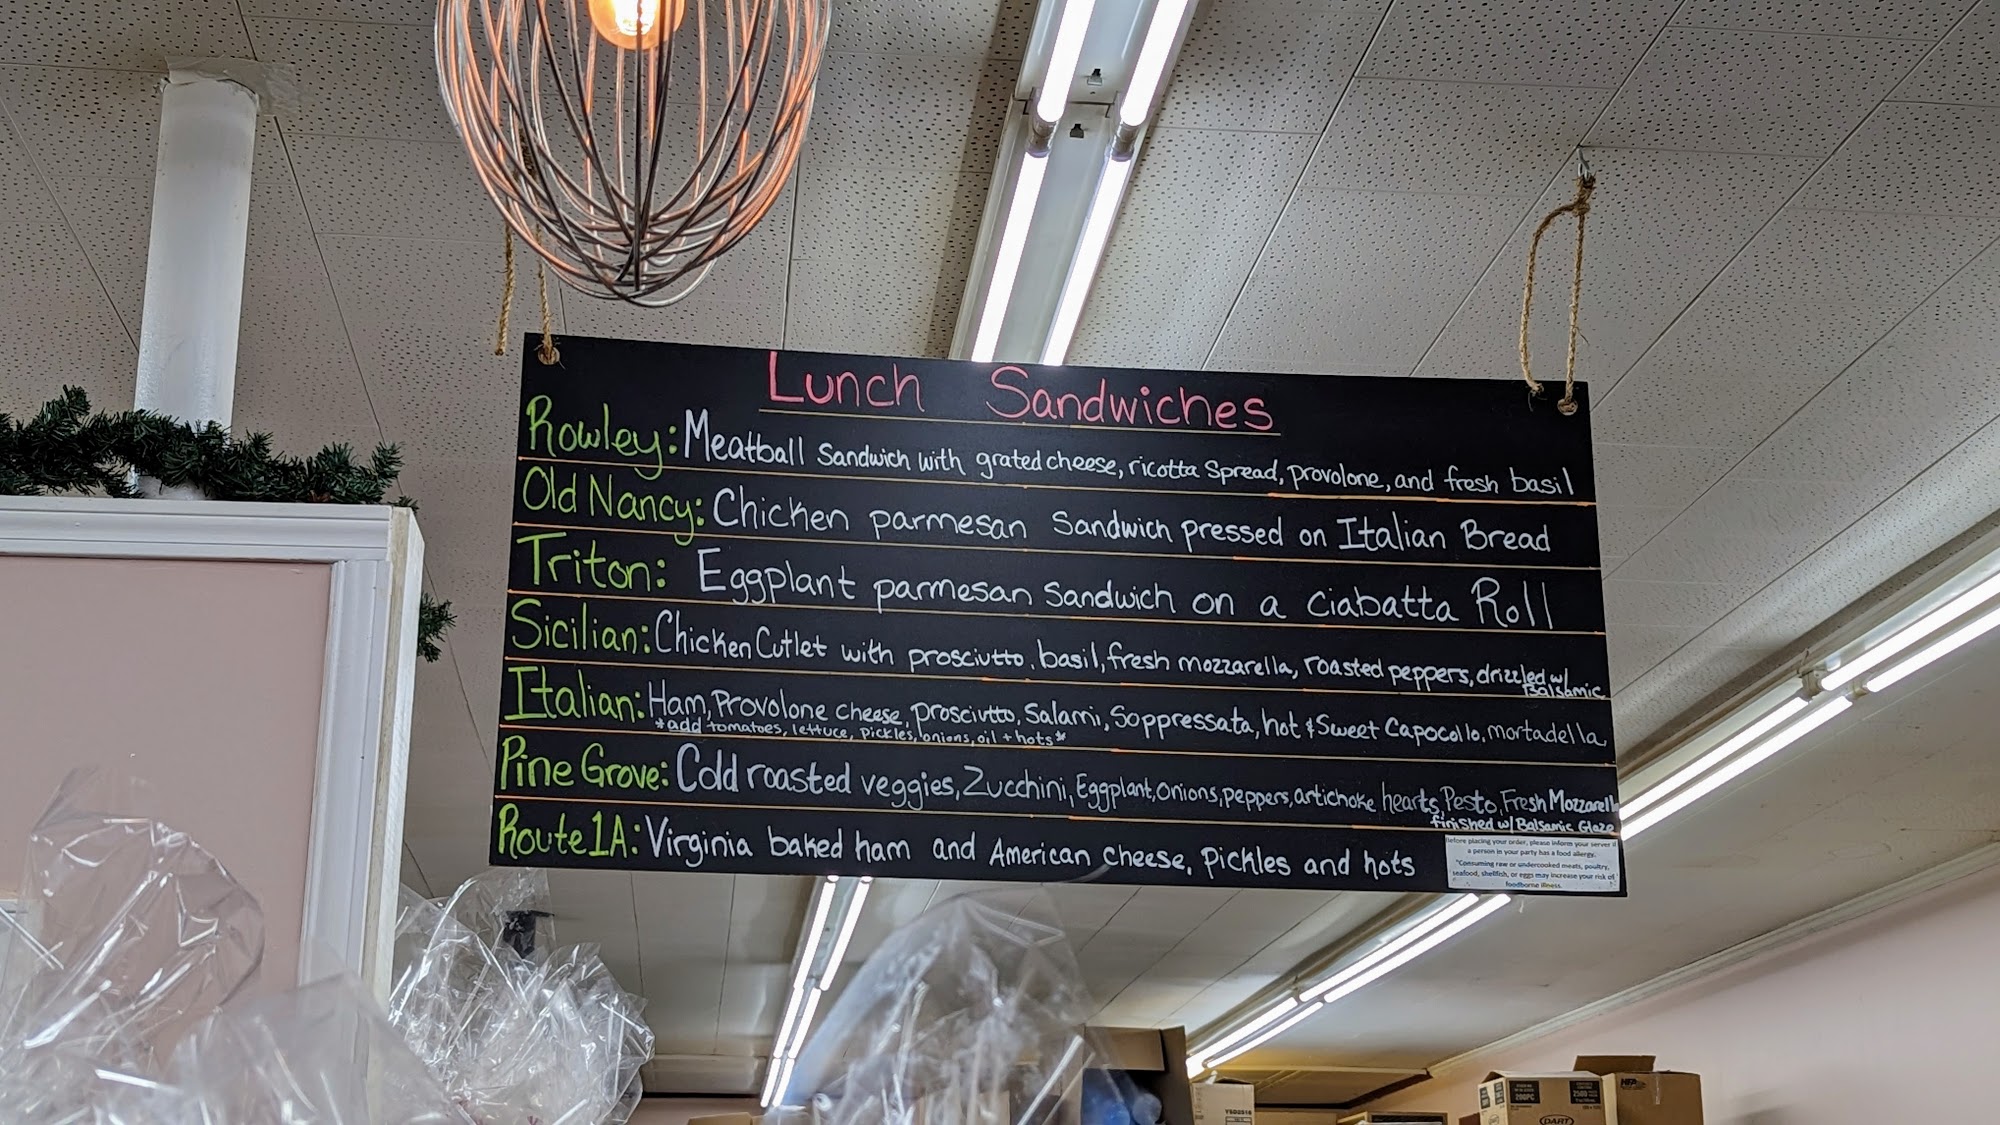 Lunch Sandwiches
Rowley: Meatball Sandwich with grated cheese, ricotta Spread, provolone, and fresh basil
Old Nancy: Chicken parmesan Sandwich pressed on Italian Bread
Triton: Eggplant parmesan Sandwich on a Ciabatta Roll
Sicilian: Chicken Cutlet with prosciutto, basil, fresh mozzarella, roasted peppers, drizzled w/
Balsamic
Italian: Ham, Provolone cheese, prosciutto, Salami, Soppressata, hot & Sweet Capocollo, mortadella,
*add tomatoes, lettuce, pickles, onions, oil + hots*
Pine Grove: Cold roasted veggies, Zucchini, Eggplant, onions, peppers, artichoke hearts, Pesto, Fresh Mozzarella
finished w/ Balsamic Glaze
Route 1A: Virginia baked ham and American Cheese, Pickles and hots
Before placing your order, please inform your server if
a person in your party has a food allergy.
"Consuming raw or undercooked meats, poultry,
seafood, shellfish, or eggs may increase your risk of
foodborne illness.
200PC
DART